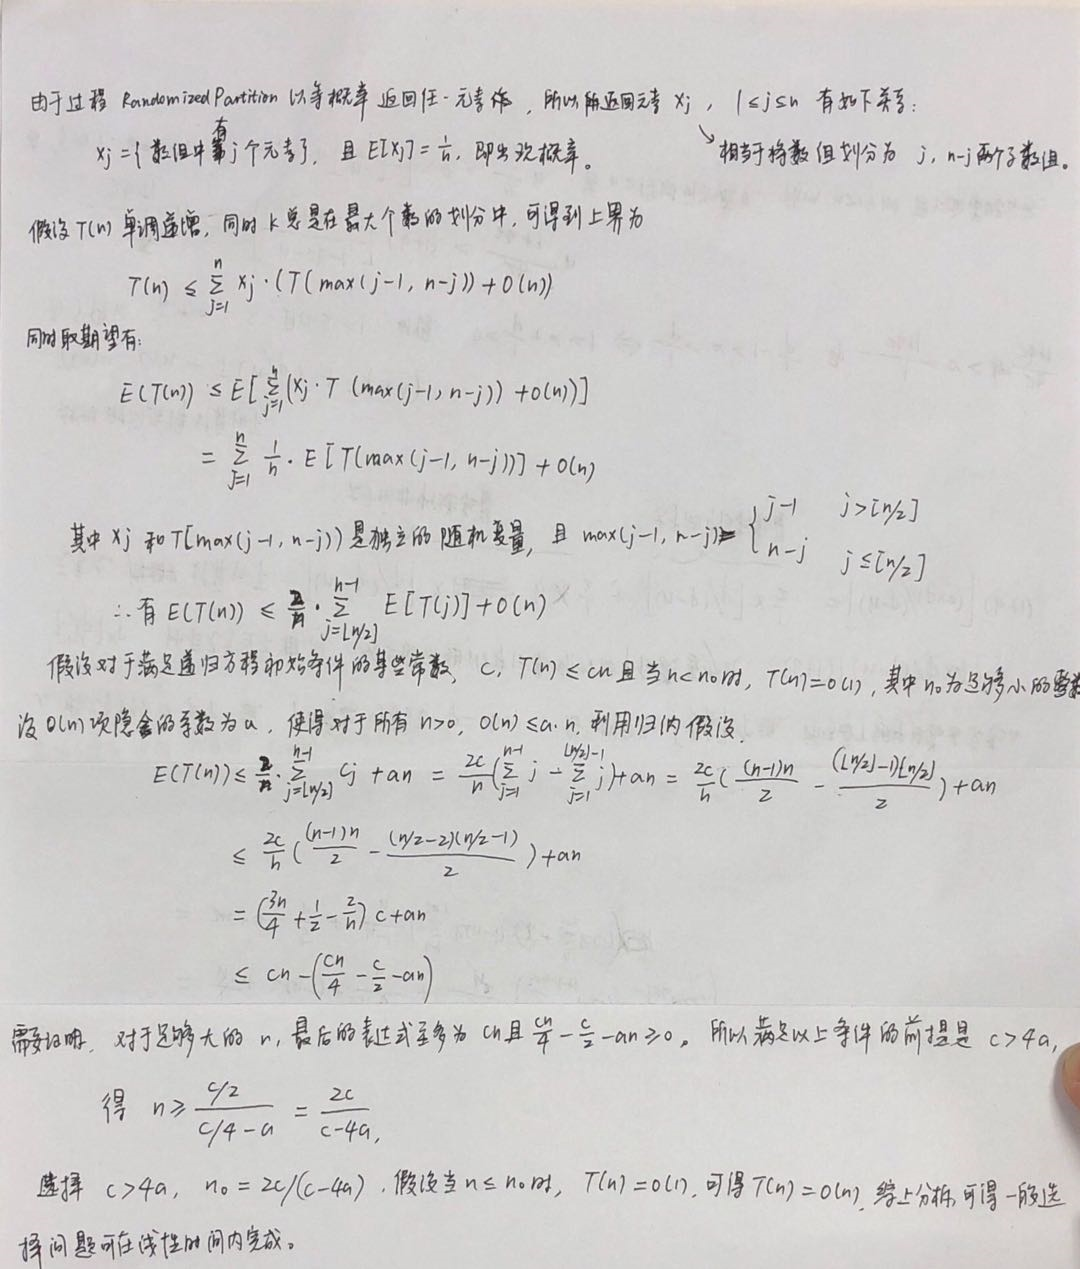 由于过程 RandomizedPartition 以等概率返回任一元素作，所以所返回元素 Xj，1≤j≤n 有如下关系：
Xj={数组中有第j个元素}，且E[Xj]=1/n，即出现概率。 ↘相当于将数组划分为 j, n-j两个子数组。
假设T(n)单调递增，同时k总是在最大个数的划分中，可得到上界为
T(n) ≤ ∑_{j=1}^{n} Xj·(T(max(j-1, n-j))+O(n))
同时取期望有：
E(T(n)) ≤ E[∑_{j=1}^{n}(Xj·T(max(j-1, n-j))+O(n))]
= ∑_{j=1}^{n} 1/n · E[T(max(j-1, n-j))]+O(n)
其中Xj和T[max(j-1, n-j))是独立的随机变量，且 max(j-1, n-j)= { j-1 j>[n/2]
n-j j≤[n/2]
∴有 E(T(n)) ≤ 2/n · ∑_{j=⌊n/2⌋}^{n-1} E[T(j)]+O(n)
假设对于满足递归方程初始条件的某些常数，c，T(n)≤cn且当n<n₀时，T(n)=O(1)，其中n₀为足够小的常数
设O(n)项隐含的系数为a，使得对于所有n>0，O(n)≤a·n，利用归纳假设，
E(T(n))≤ 2/n · ∑_{j=⌊n/2⌋}^{n-1} cj + an = 2c/n (∑_{j=1}^{n-1} j - ∑_{j=1}^{⌊n/2⌋-1} j)+an = 2c/n ((n-1)n/2 - (⌊n/2⌋-1)⌊n/2⌋/2)+an
≤ 2c/n ((n-1)n/2 - (n/2-2)(n/2-1)/2)+an
= (3n/4+1/2-2/n) c+an
≤ cn-(cn/4-c/2-an)
需要证明，对于足够大的n，最后的表达式至多为cn且cn/4-c/2-an≥0。所以满足以上条件的前提是 c>4a，
得 n≥ (c/2)/(c/4-a) = 2c/(c-4a)，
选择 c>4a，n₀=2c/(c-4a)，假设当n≤n₀时，T(n)=O(1)，可得T(n)=O(n)，综上分析，可得一般选
择问题可在线性时间内完成。